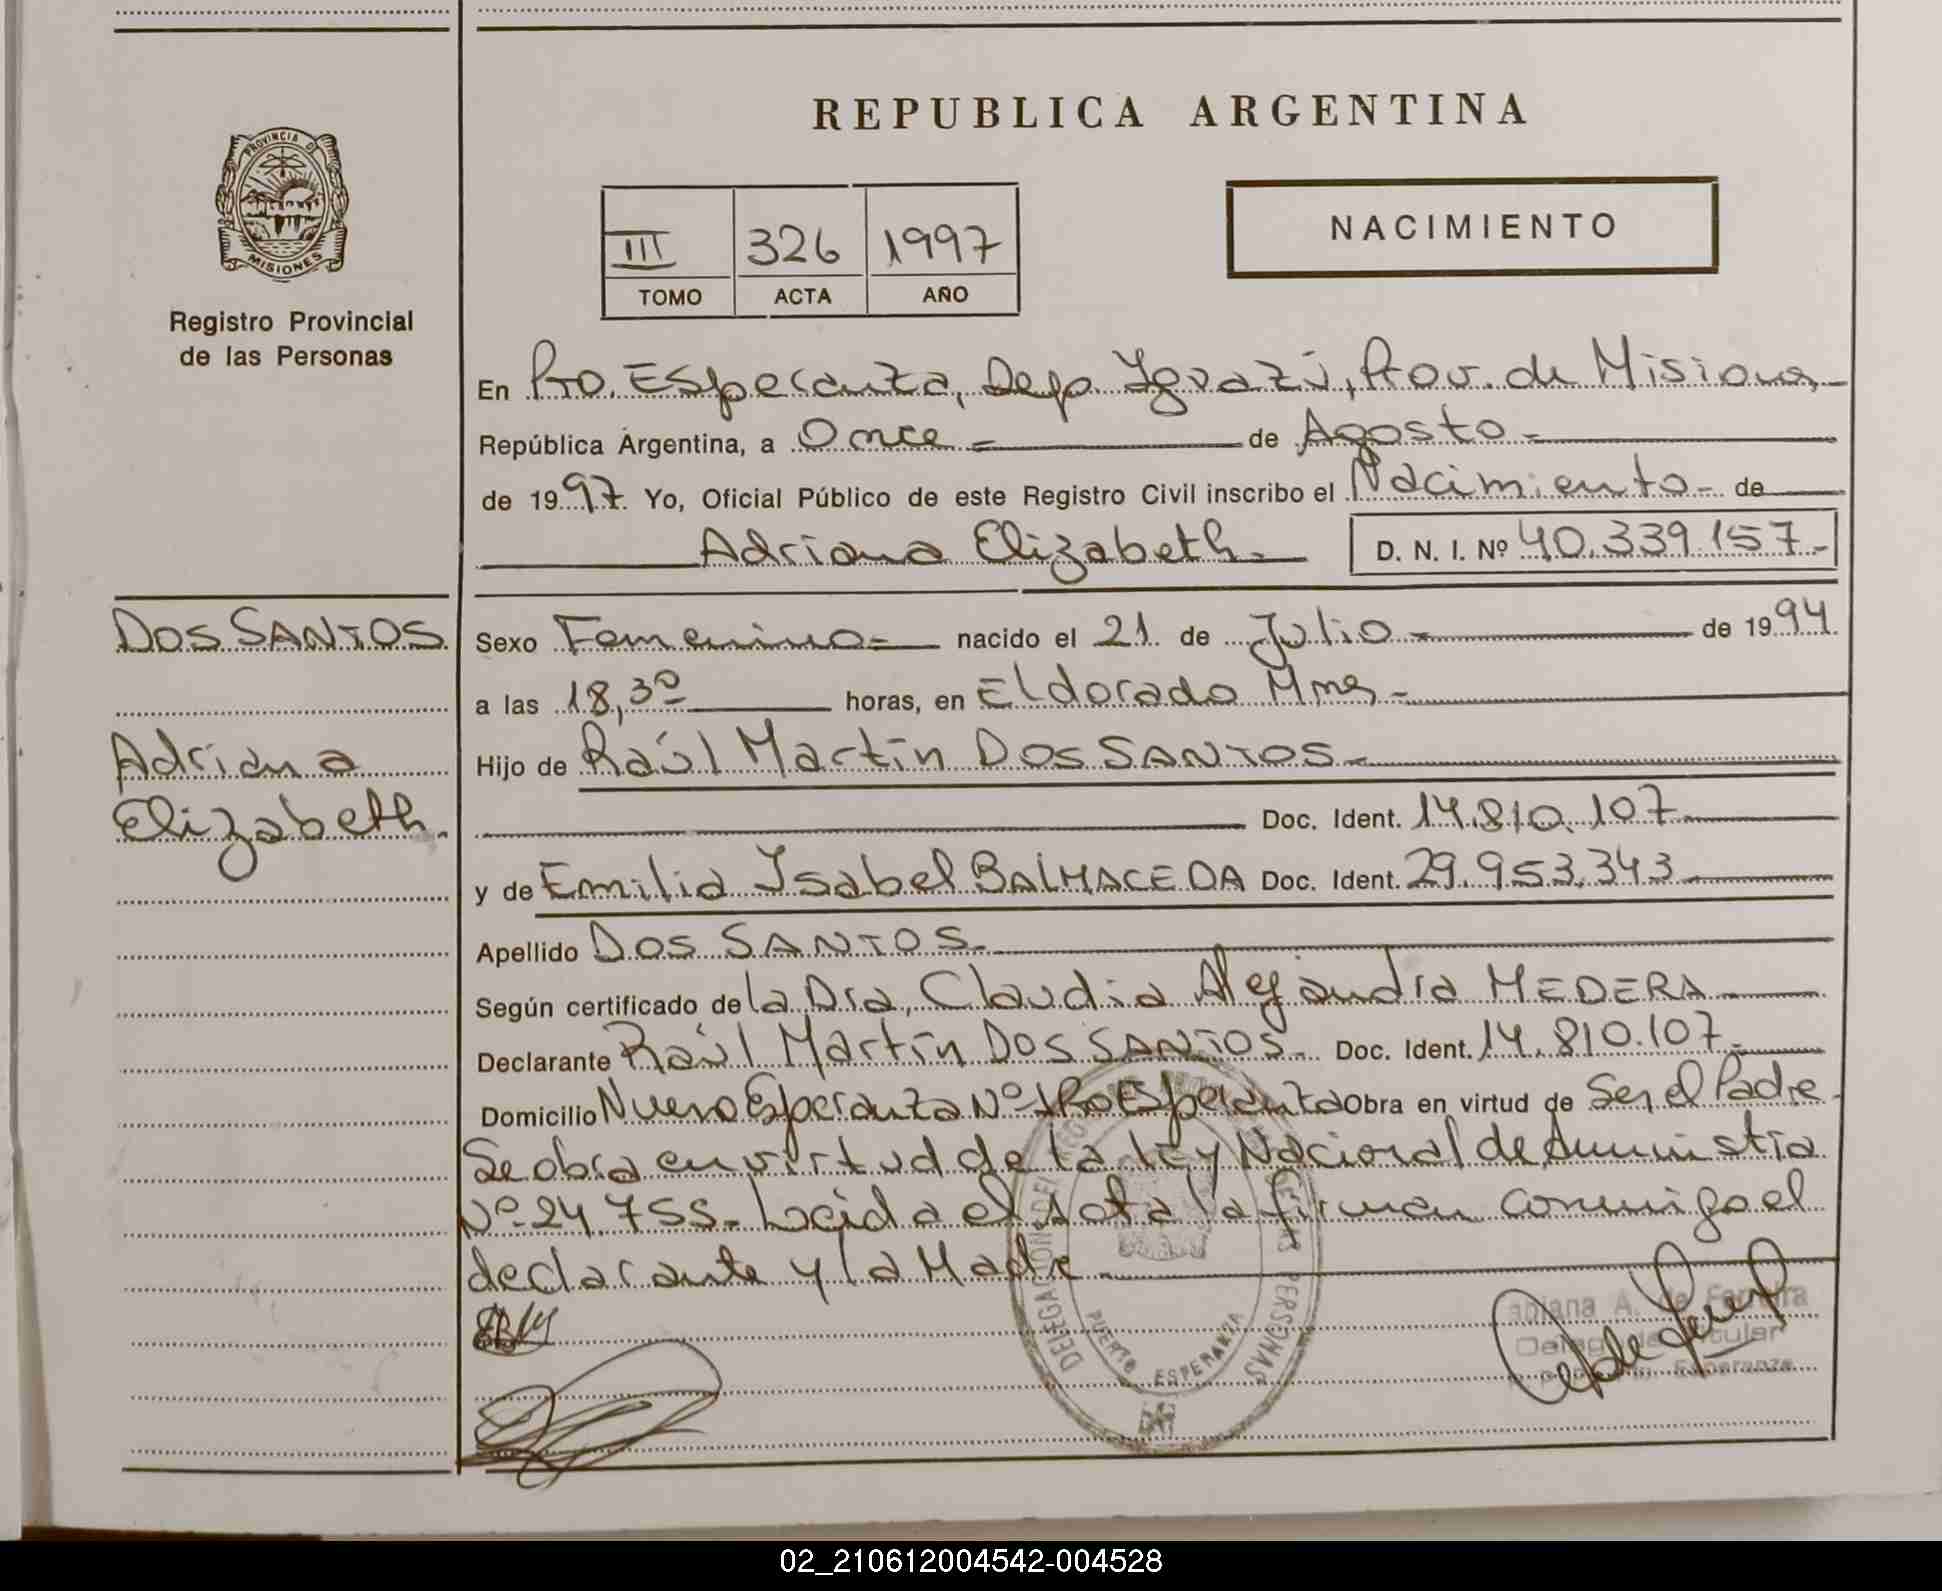 REPUBLICA ARGENTINA
PROVINCIA D
MISIONES
Registro Provincial
de las Personas
III 326 1997
TOMO ACTA AÑO
NACIMIENTO
En Pto. Esperanza, Dep. Iguazú, Prov. de Misiones
República Argentina, a Once de Agosto
de 1997 Yo, Oficial Público de este Registro Civil inscribo el Nacimiento de
Adriana Elizabeth D. N. I. Nº 40.339.157
DOS SANTOS
Adriana
Elizabeth
Sexo Femenino nacido el 21 de Julio de 1994
a las 18,30 horas, en Eldorado Mnes
Hijo de Raúl Martín DOS SANTOS
Doc. Ident. 14.810.107
y de Emilia Ysabel BALMACEDA Doc. Ident. 29.953.343
Apellido DOS SANTOS
Según certificado de la Dra, Claudia Alejandra MEDERA
Declarante Raúl Martín DOS SANTOS Doc. Ident. 14.810.107
Domicilio Nueva Esperanza Nº 1 Pto Esperanza Obra en virtud de Ser el Padre
Se obra en virtud de la Ley Nacional de Amnistía
Nº 24.755. Leída el Acta la firman conmigo el
declarante y la Madre
DELEGACION DEL DE LAS PERSONAS
PUERTO ESPERANZA
abiana A. de Ferreira
Delegada Titular
Esperanza
02_210612004542-004528